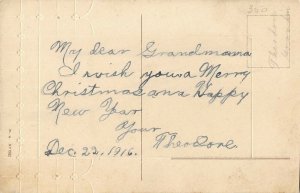 My dear Grandmama
I wish you a Merry
Christmas and Happy
New Year
Your
Theodore.
Dec. 22, 1916.